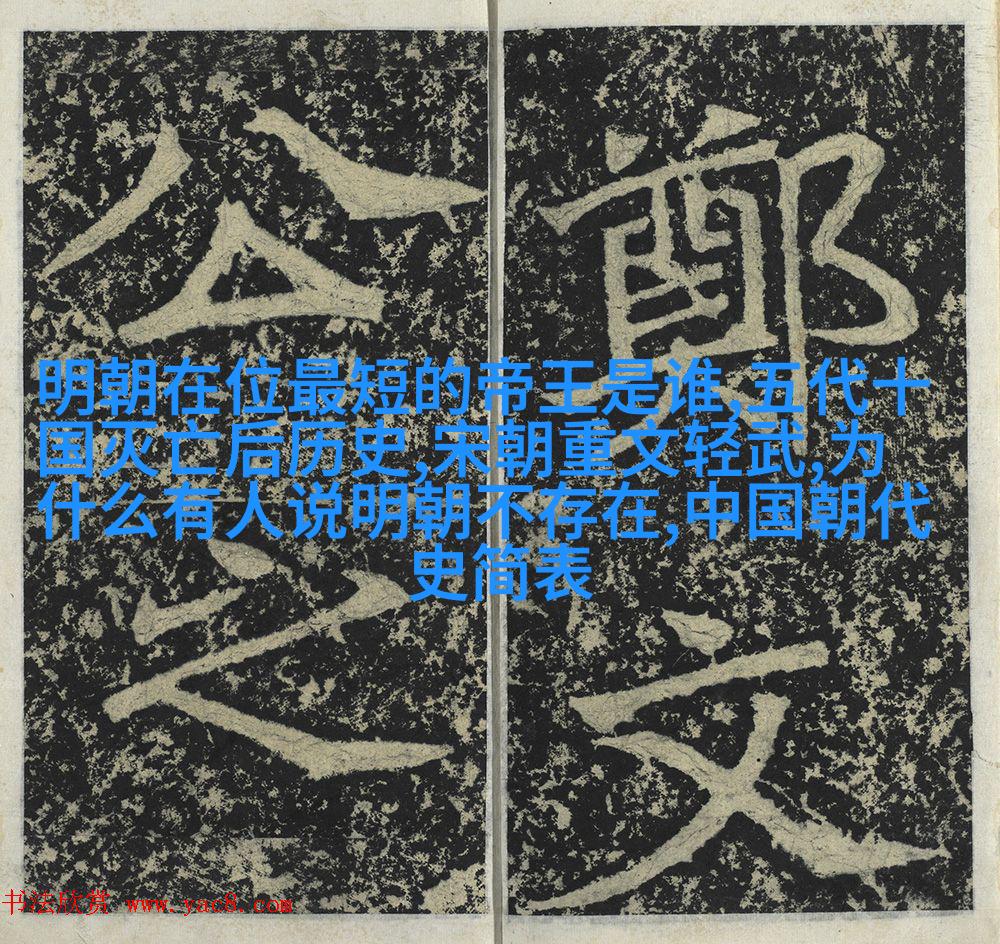 鄭文
公之
明朝在位最短的帝王是谁,五代十
国灭亡后历史,宋朝重文轻武,为
什么有人说明朝不存在,中国朝代
史简表
书法欣赏 www.yac8.com